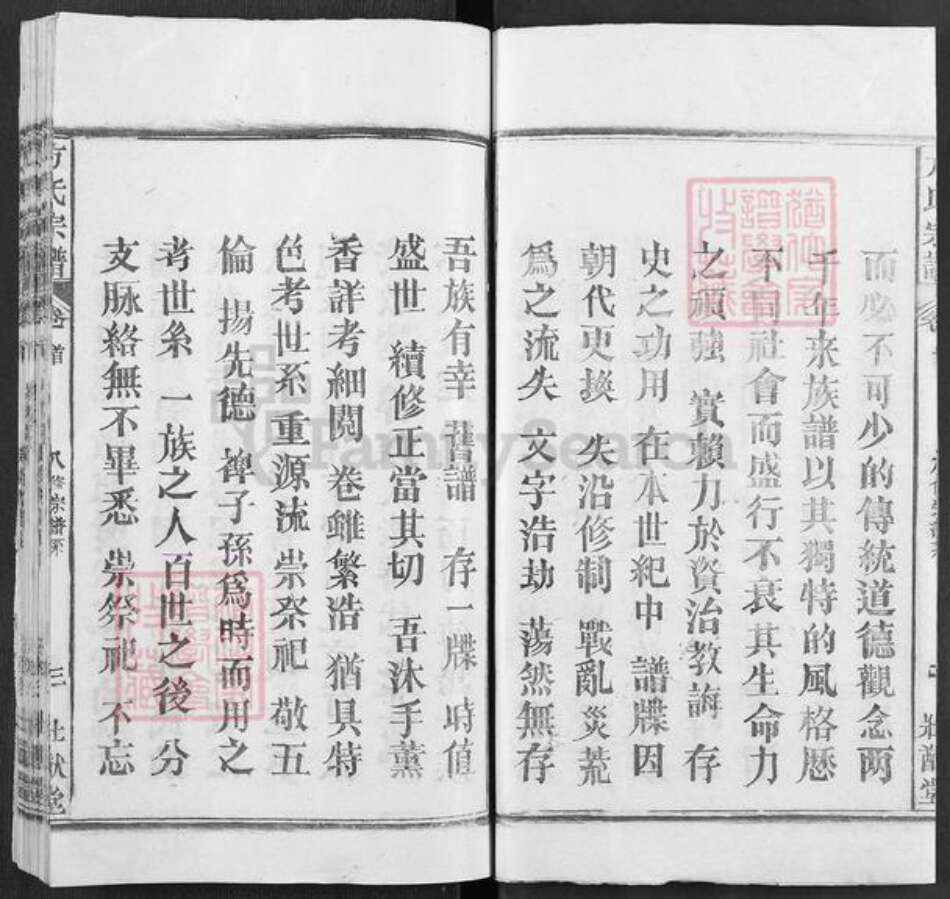 而必不可少的傳統道德觀念两
千年来族譜以其獨特的風格歷
不同社會而盛行不衰其生命力
之頑強 實賴力於資治教誨 存
史之功用 在本世紀中 譜牒因
朝代更换 失沿修制 戰亂災荒
爲之流失 文字浩劫 蕩然無存
吾族有幸 舊譜 存一牒 時值
盛世 續修正當其切 吾沐手薰
香詳考細閱 卷雖繁浩 猶具特
色考世系重源流 崇祭祀 敬五
倫 揚先德 禆子孫爲時而用之
考世系 一族之人百世之後 分
支脉絡無不畢悉 崇祭祀 不忘
方氏宗譜 卷首 八修宗譜序 三 壯猷堂
FamilySearch